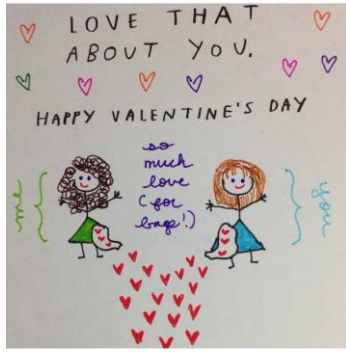 LOVE THAT
ABOUT YOU.
HAPPY VALENTINE'S DAY
so
much
love
(for
bags!)
me
you